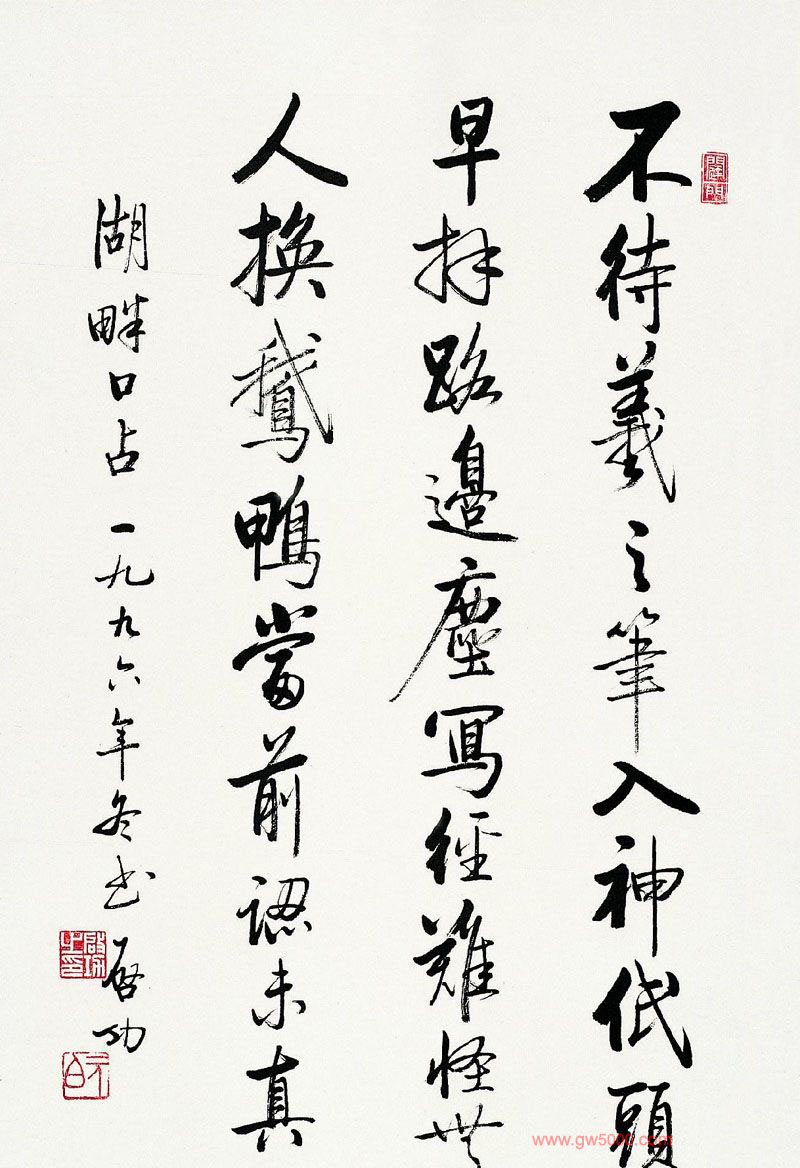 不待羲之筆入神低頭
早拜路邊塵寫經難怪世
人換鵝鴨當前認未真
湖畔口占 一九九六年冬书 启功
啟功之印
元白
www.gw5000.com